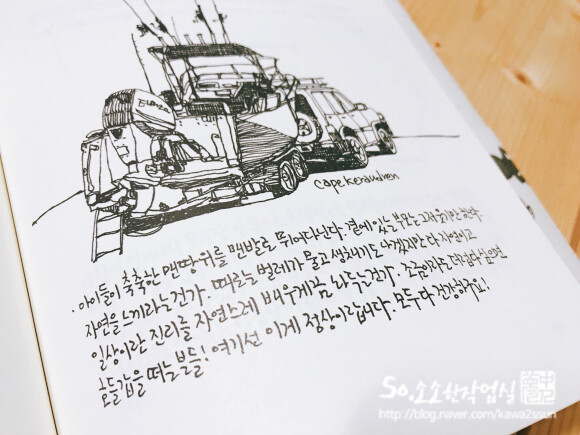 Cape Keraudren
·아이들이 축축한 맨땅 위를 맨발로 뛰어다닌다. 곁에 있는 부모는 그저 웃기만 한다.
자연을 느끼라는건가. 때로는 벌레가 물고 생채기도 나겠지만 다 자연이고
일상이란 진리를 자연스레 배우게끔 놔두는건가. 조금이라도 더럽다 싶으면
호들갑을 떠는 분들! 여기선 이게 정상이랍니다. 모두 다 건강하구요!
So.소소한작업실
http://blog.naver.com/kawa2ssun